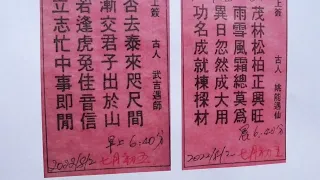 上簽 古人 姚能遇仙
茂林松柏正興旺
雨雪風霜總莫為
異日忽然成大用
功名成就棟樑材
晨 6:40分
2022/8/2 七月初五
上簽 古人 武吉遇師
否去泰來咫尺間
漸交君子出於山
若逢虎兔佳音信
立志忙中事即閒
早上 6:40分
2022/8/2 七月初五